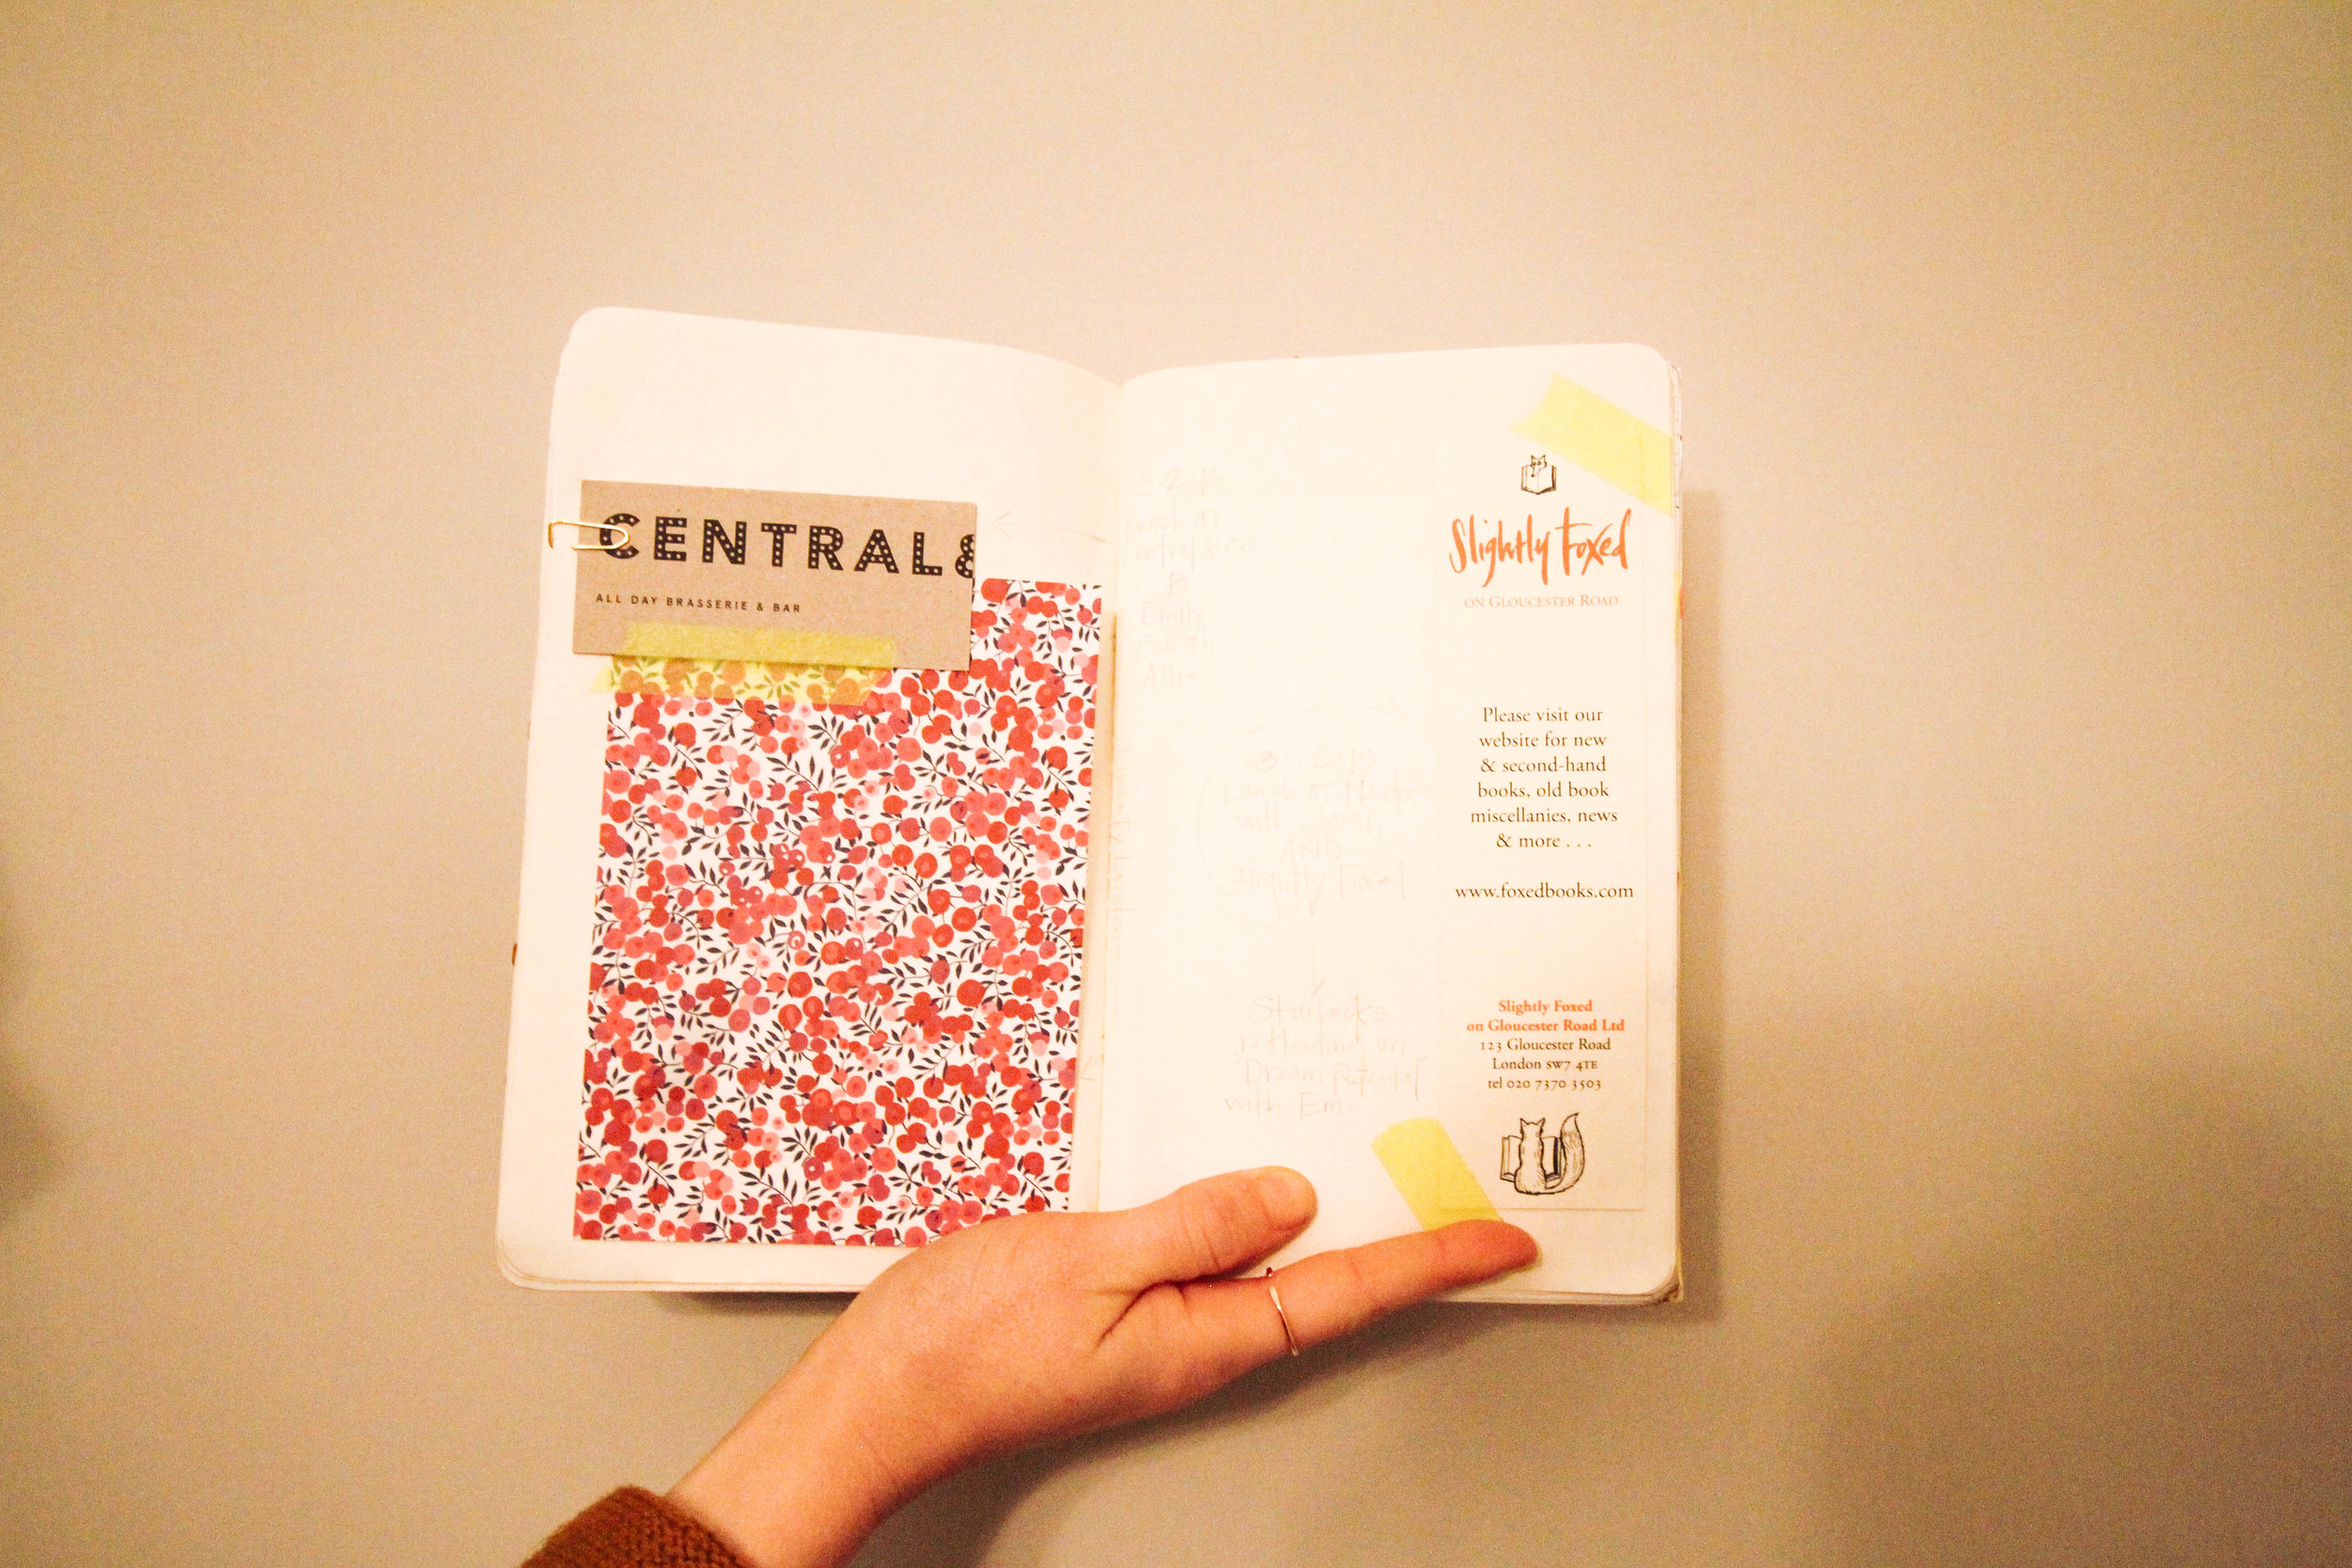 CENTRAL&
ALL DAY BRASSERIE & BAR
Lunch AT
Central & Co.
Emily
Sarah
Allie
03.02.15
Lunch AT
with Sarah
AND
Slightly Foxed
Starbucks
reflecting on
Dream Potential
with Em.
Slightly Foxed
ON GLOUCESTER ROAD
Please visit our
website for new
& second-hand
books, old book
miscellanies, news
& more . . .
www.foxedbooks.com
Slightly Foxed
on Gloucester Road Ltd
123 Gloucester Road
London SW7 4TE
tel 020 7370 3503